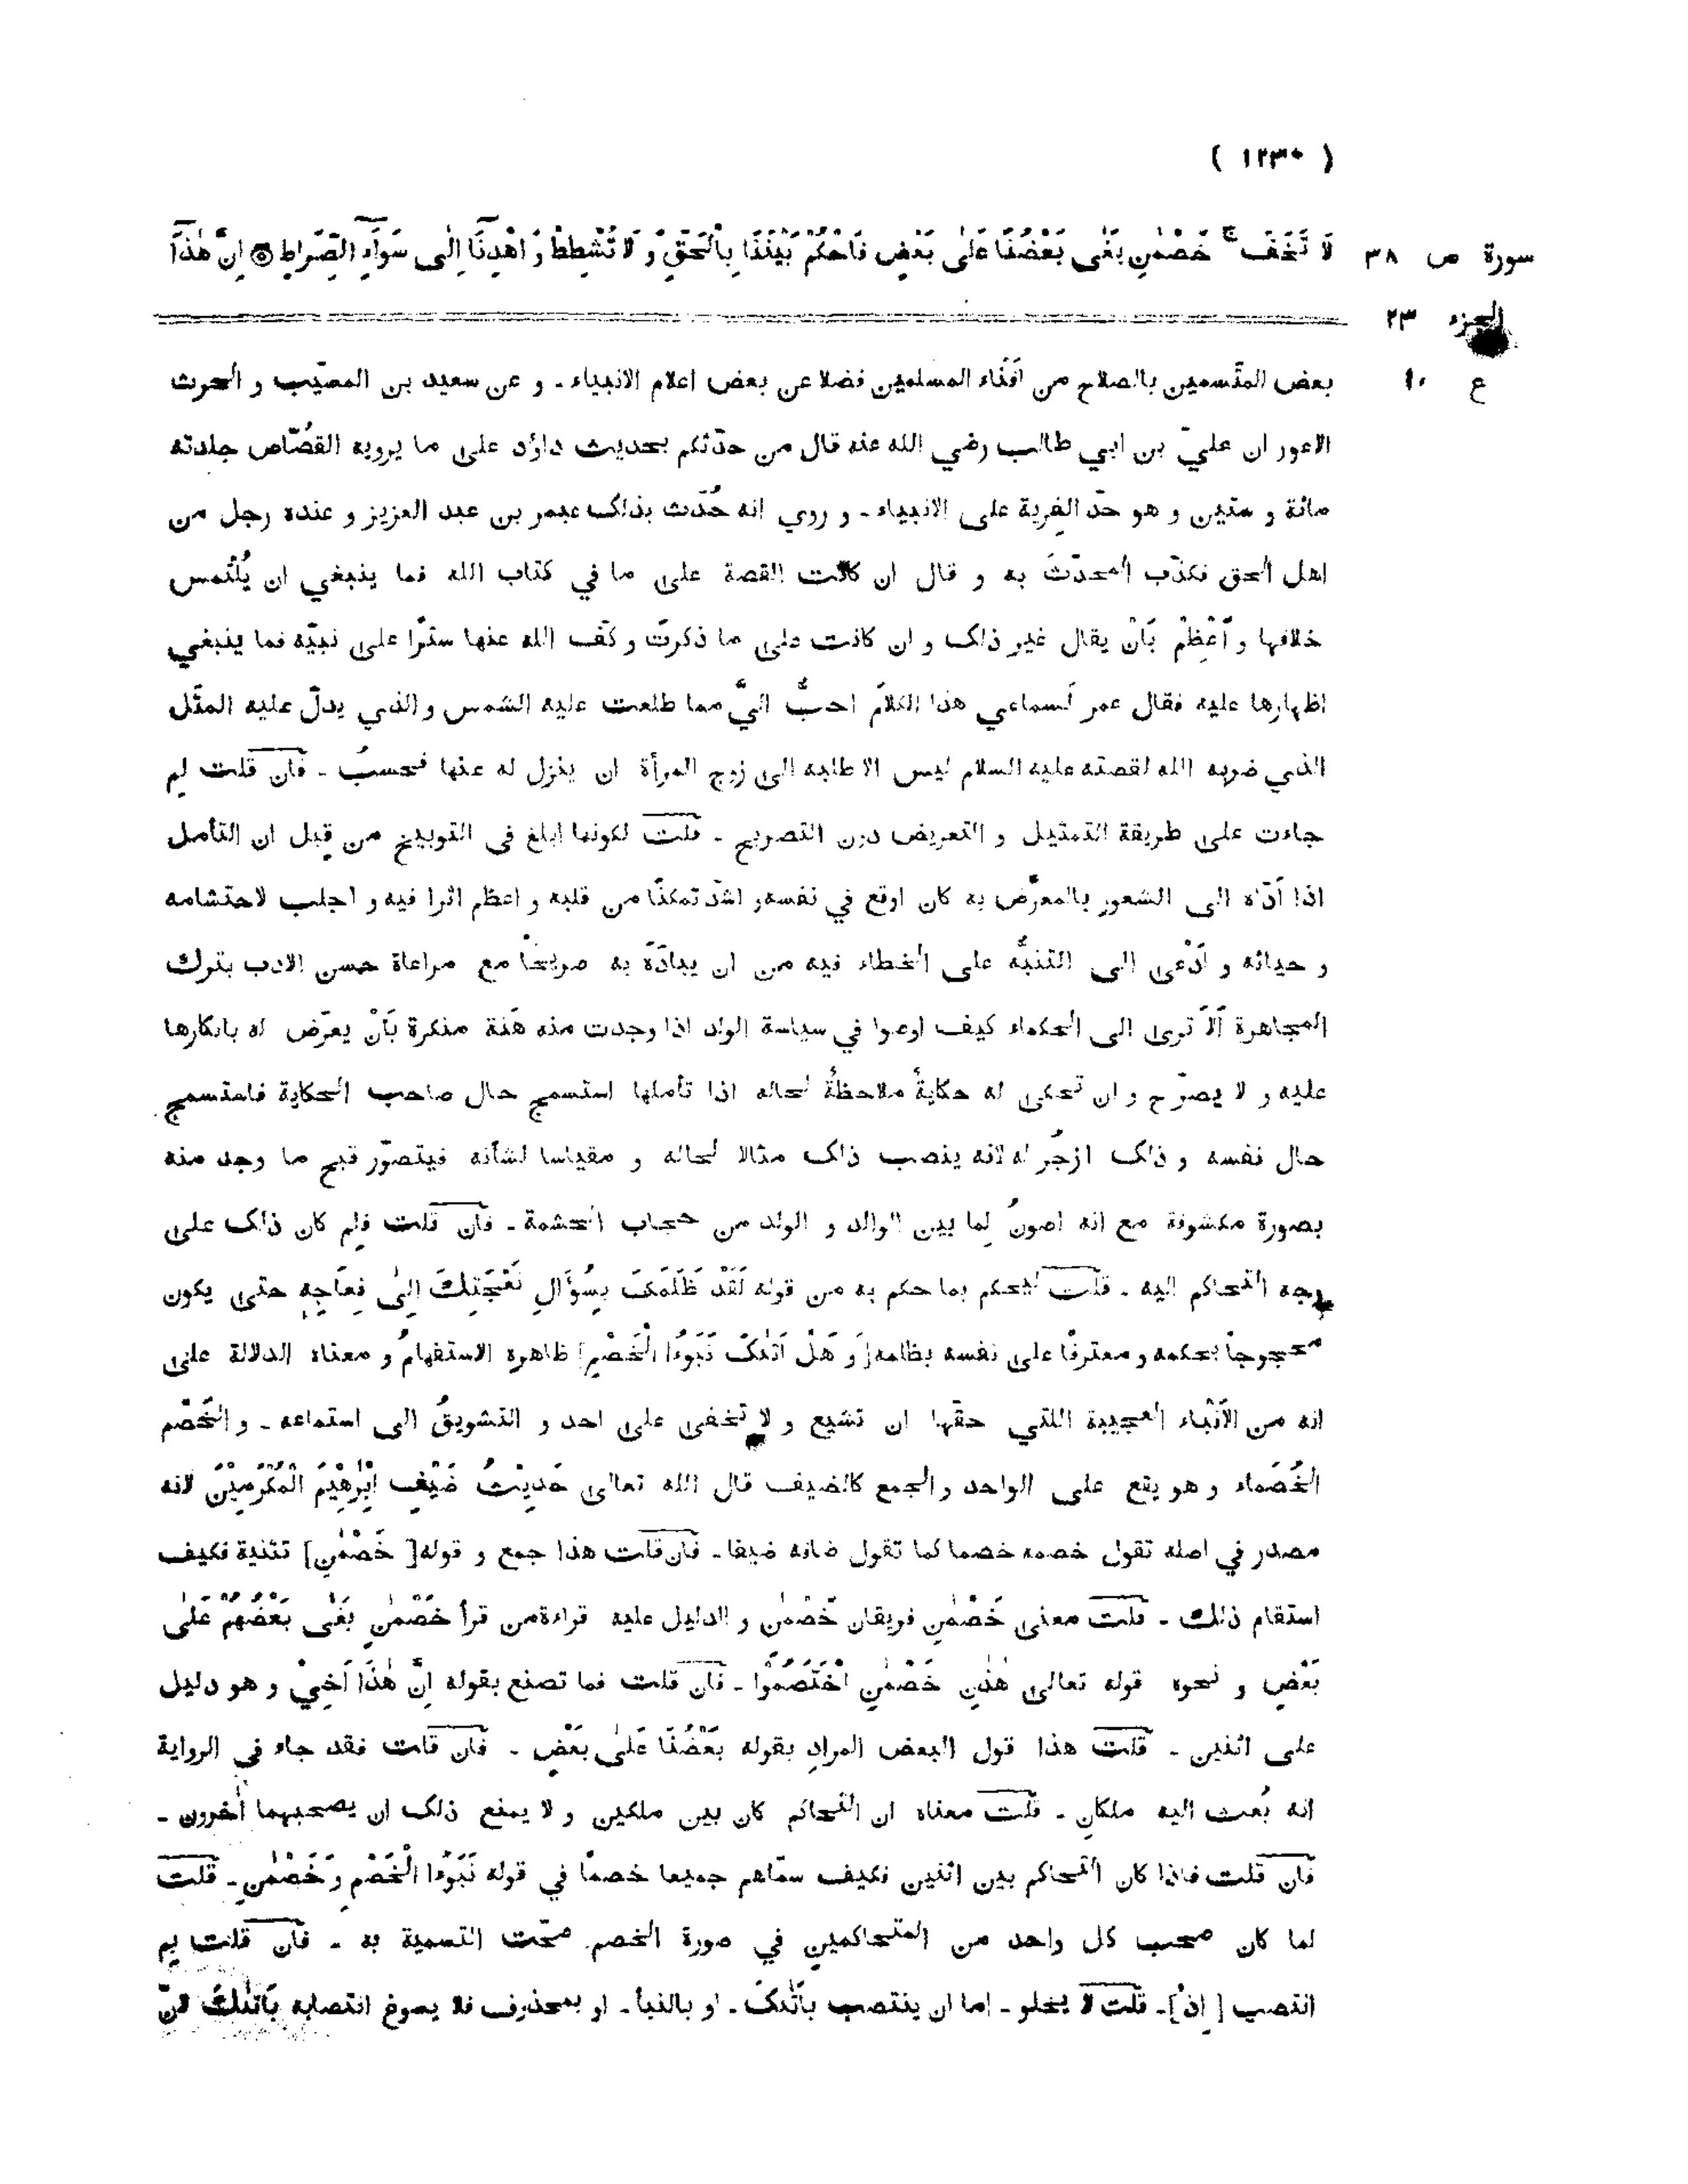 ( ١٢٣٠ )
سورة ص ٣٨ لَا تَخَفْ ۚ خَصْمٰنِ بَغٰى بَعْضُنَا عَلٰى بَعْضٍ فَاحْكُمْ بَيْنَنَا بِالْحَقِّ وَ لَا تُشْطِطْ وَ اهْدِنَا اِلٰى سَوَآءِ الصِّرَاطِ ۞ اِنَّ هٰذَآ
الجزء ٢٣
ع ١٠ بعض المتّسمين بالصلاح من افناء المسلمين فضلا عن بعض اعلام الانبياء ـ و عن سعيد بن المسيّب و الحرث
الاعور ان عليّ بن ابي طالب رضي الله عنه قال من حدّثكم بحديث داؤد على ما يرويه القُصّاص جلدته
مائة و ستين و هو حدّ الفِرية على الانبياء ـ و روي انه حُدّث بذلك عمر بن عبد العزيز و عنده رجل من
اهل الحق فكذّب المحدّثَ به و قال ان كانت القصة على ما في كتاب الله فما ينبغي ان يُلْتمس
خلافها و اَعْظِمْ بَاَنْ يقال غير ذلك و ان كانت على ما ذكرتَ و كفّ الله عنها سترًا على نبيّه فما ينبغي
اظهارها عليه فقال عمر لَسماعي هذا الكلامَ احبُّ اليَّ مما طلعت عليه الشمس والذي يدلّ عليه المثل
الذي ضربه الله لقصته عليه السلام ليس الا طلبه الى زوج المرأة ان ينزل له عنها فحسبُ ـ فان قلت لم
جاءت على طريقة التمثيل و التعريض دون التصريح ـ قلت لكونها ابلغ في التوبيخ من قِبل ان التأمل
اذا اَدّاه الى الشعور بالمعرّض به كان اوقع في نفسه و اشد تمكنًا من قلبه و اعظم اثرا فيه و اجلب لاحتشامه
و حيائه و اَدْعى الى التنبّه على الخطاء فيه من ان يبادَهَ به صريحًا مع مراعاة حسن الادب بترك
المجاهرة اَلَا ترى الى الحكماء كيف اوصوا في سياسة الولد اذا وجدت منه هَنة منكرة بَاَنْ يعرّض له بانكارها
عليه و لا يصرّح و ان تحكى له حكايةٌ ملاحظةٌ لحاله اذا تأملها استسمج حال صاحب الحكاية فاستسمج
حال نفسه و ذلك ازجُر له لانه ينصب ذلك مثالا لحاله و مقياسا لشأنه فيتصوّر قبح ما وجد منه
بصورة مكشوفة مع انه اصونُ لِما بين الوالد و الولد من حجاب الحشمة ـ فان قلت فلِم كان ذلك على
وجه التحاكم اليه ـ قلت ليحكم بما حكم به من قوله لَقَدْ ظَلَمَكَ بِسُؤَالِ نَعْجَتِكَ اِلٰى نِعَاجِهٖ حتى يكون
محجوجاً بحكمه و معترفًا على نفسه بظلمه [ وَ هَلْ اَتٰىكَ نَبَؤُا الْخَصْمِ ] ظاهره الاستفهامُ و معناه الدلالة على
انه من الاَنْباء العجيبة اللتي حقّها ان تشيع و لا تخفى على احد و التشويقُ الى استماعه ـ و الخَصْم
الخُصَماء و هو يقع على الواحد و الجمع كالضيف قال الله تعالى حَدِيْثُ ضَيْفِ اِبْرٰهِيْمَ الْمُكْرَمِيْنَ لانه
مصدر في اصله تقول خصمه خصما كما تقول ضافه ضيفا ـ فان قلت هذا جمع و قوله [ خَصْمٰنِ ] تثنية فكيف
استقام ذلك ـ قلت معنى خَصْمٰنِ فريقان خَصْمٰن و الدليل عليه قراءة من قرأ خَصْمٰنِ بَغٰى بَعْضُهُمْ عَلٰى
بَعْضٍ و نحوه قوله تعالى هٰذٰنِ خَصْمٰنِ اخْتَصَمُوْا ـ فان قلت فما تصنع بقوله اِنَّ هٰذَا اَخِيْ و هو دليل
على اثنين ـ قلت هذا قول البعض المرادِ بقوله بَعْضُنَا عَلٰى بَعْضٍ ـ فان قلت فقد جاء في الرواية
انه بُعث اليه ملكانِ ـ قلت معناه ان التحاكم كان بين ملكين و لا يمنع ذلك ان يصحبهما اٰخرون ـ
فان قلت فاذا كان التحاكم بين اثنين فكيف سمّاهم جميعا خصمًا في قوله نَبَؤُا الْخَصْمِ وَ خَصْمٰنِ ـ قلت
لما كان صحب كل واحد من المتحاكمين في صورة الخصم صحّت التسمية به ـ فان قلت بم
انتصب [ اِذْ ] ـ قلت لا يخلو ـ اما ان ينتصب بِاَتٰىكَ ـ او بالنبأ ـ او بمحذوف فلا يسوغ انتصابه بِاَتٰىكَ لانّ